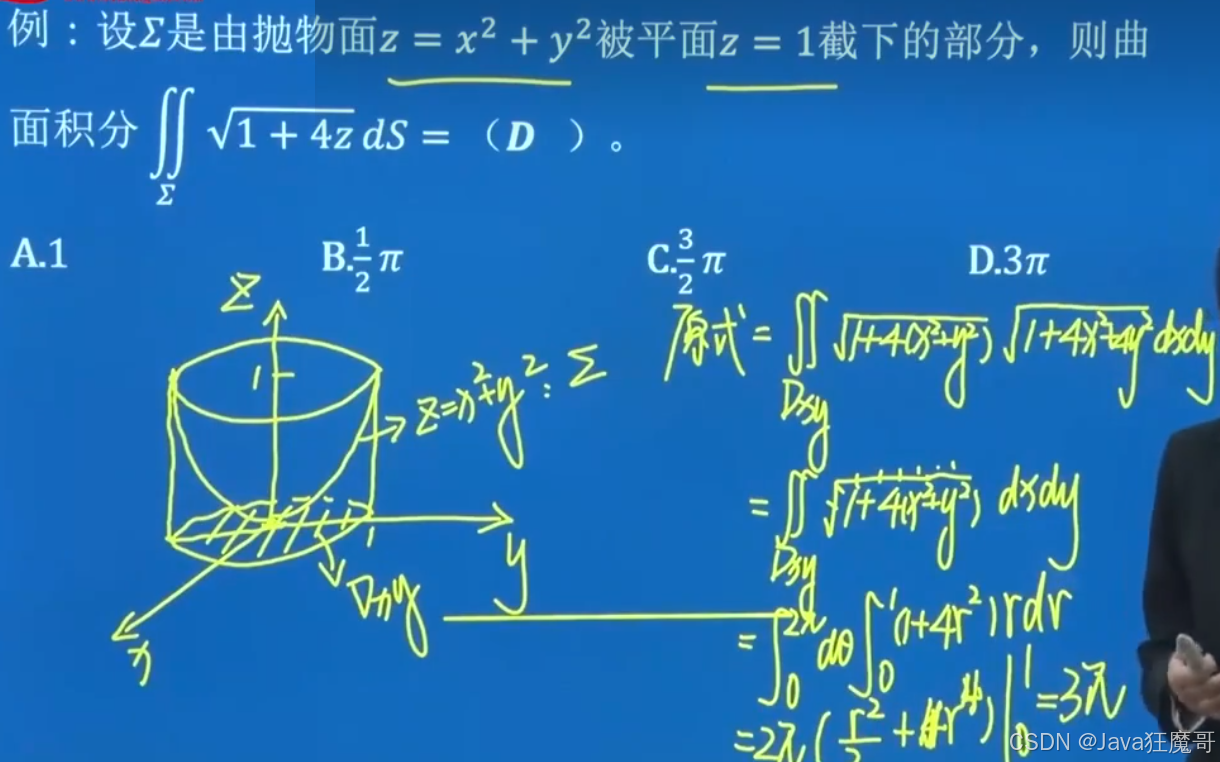 例：设Σ是由抛物面z = x² + y²被平面z = 1截下的部分，则曲
面积分∬_Σ √(1 + 4z) dS =（D ）。
A.1 B.1/2 π C.3/2 π D.3π
z
1
z=x²+y²:Σ
y
x
Dxy
原式=∬_Dxy √(1+4(x²+y²)) √(1+4x²+4y²) dxdy
=∬_Dxy √(1+4(x²+y²)) dxdy
=∫₀^2π dθ∫₀^1 (1+4r²)rdr
=2π(r²/2+r⁴)|₀^1=3π
CSDN @Java狂魔哥